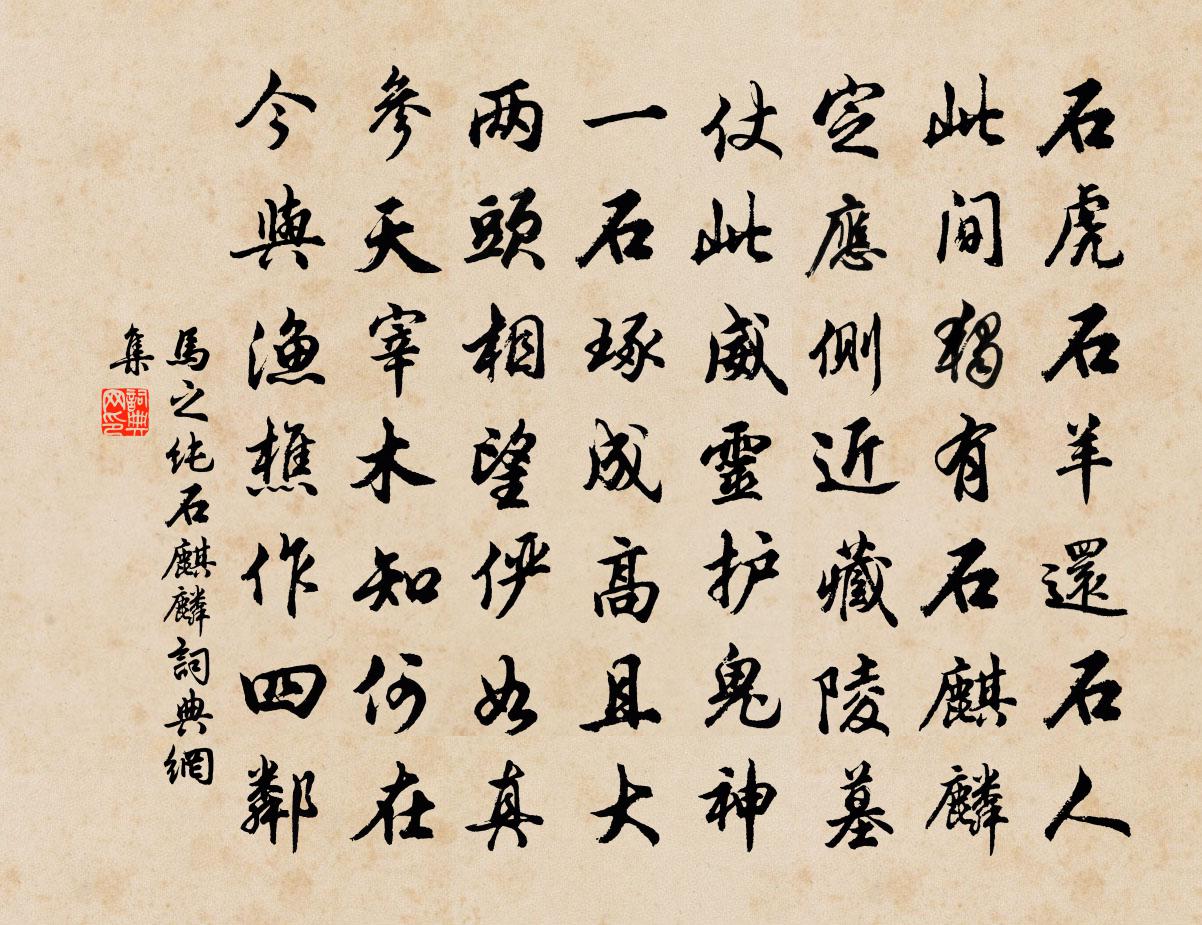 石虎石羊還石人
此间獨有石麒麟
定應側近藏陵墓
仗此威靈护鬼神
一石琢成高且大
两頭相望俨如真
參天宰木知何在
今與漁樵作四鄰
馬之純石麒麟詞典網
集
詞典网印